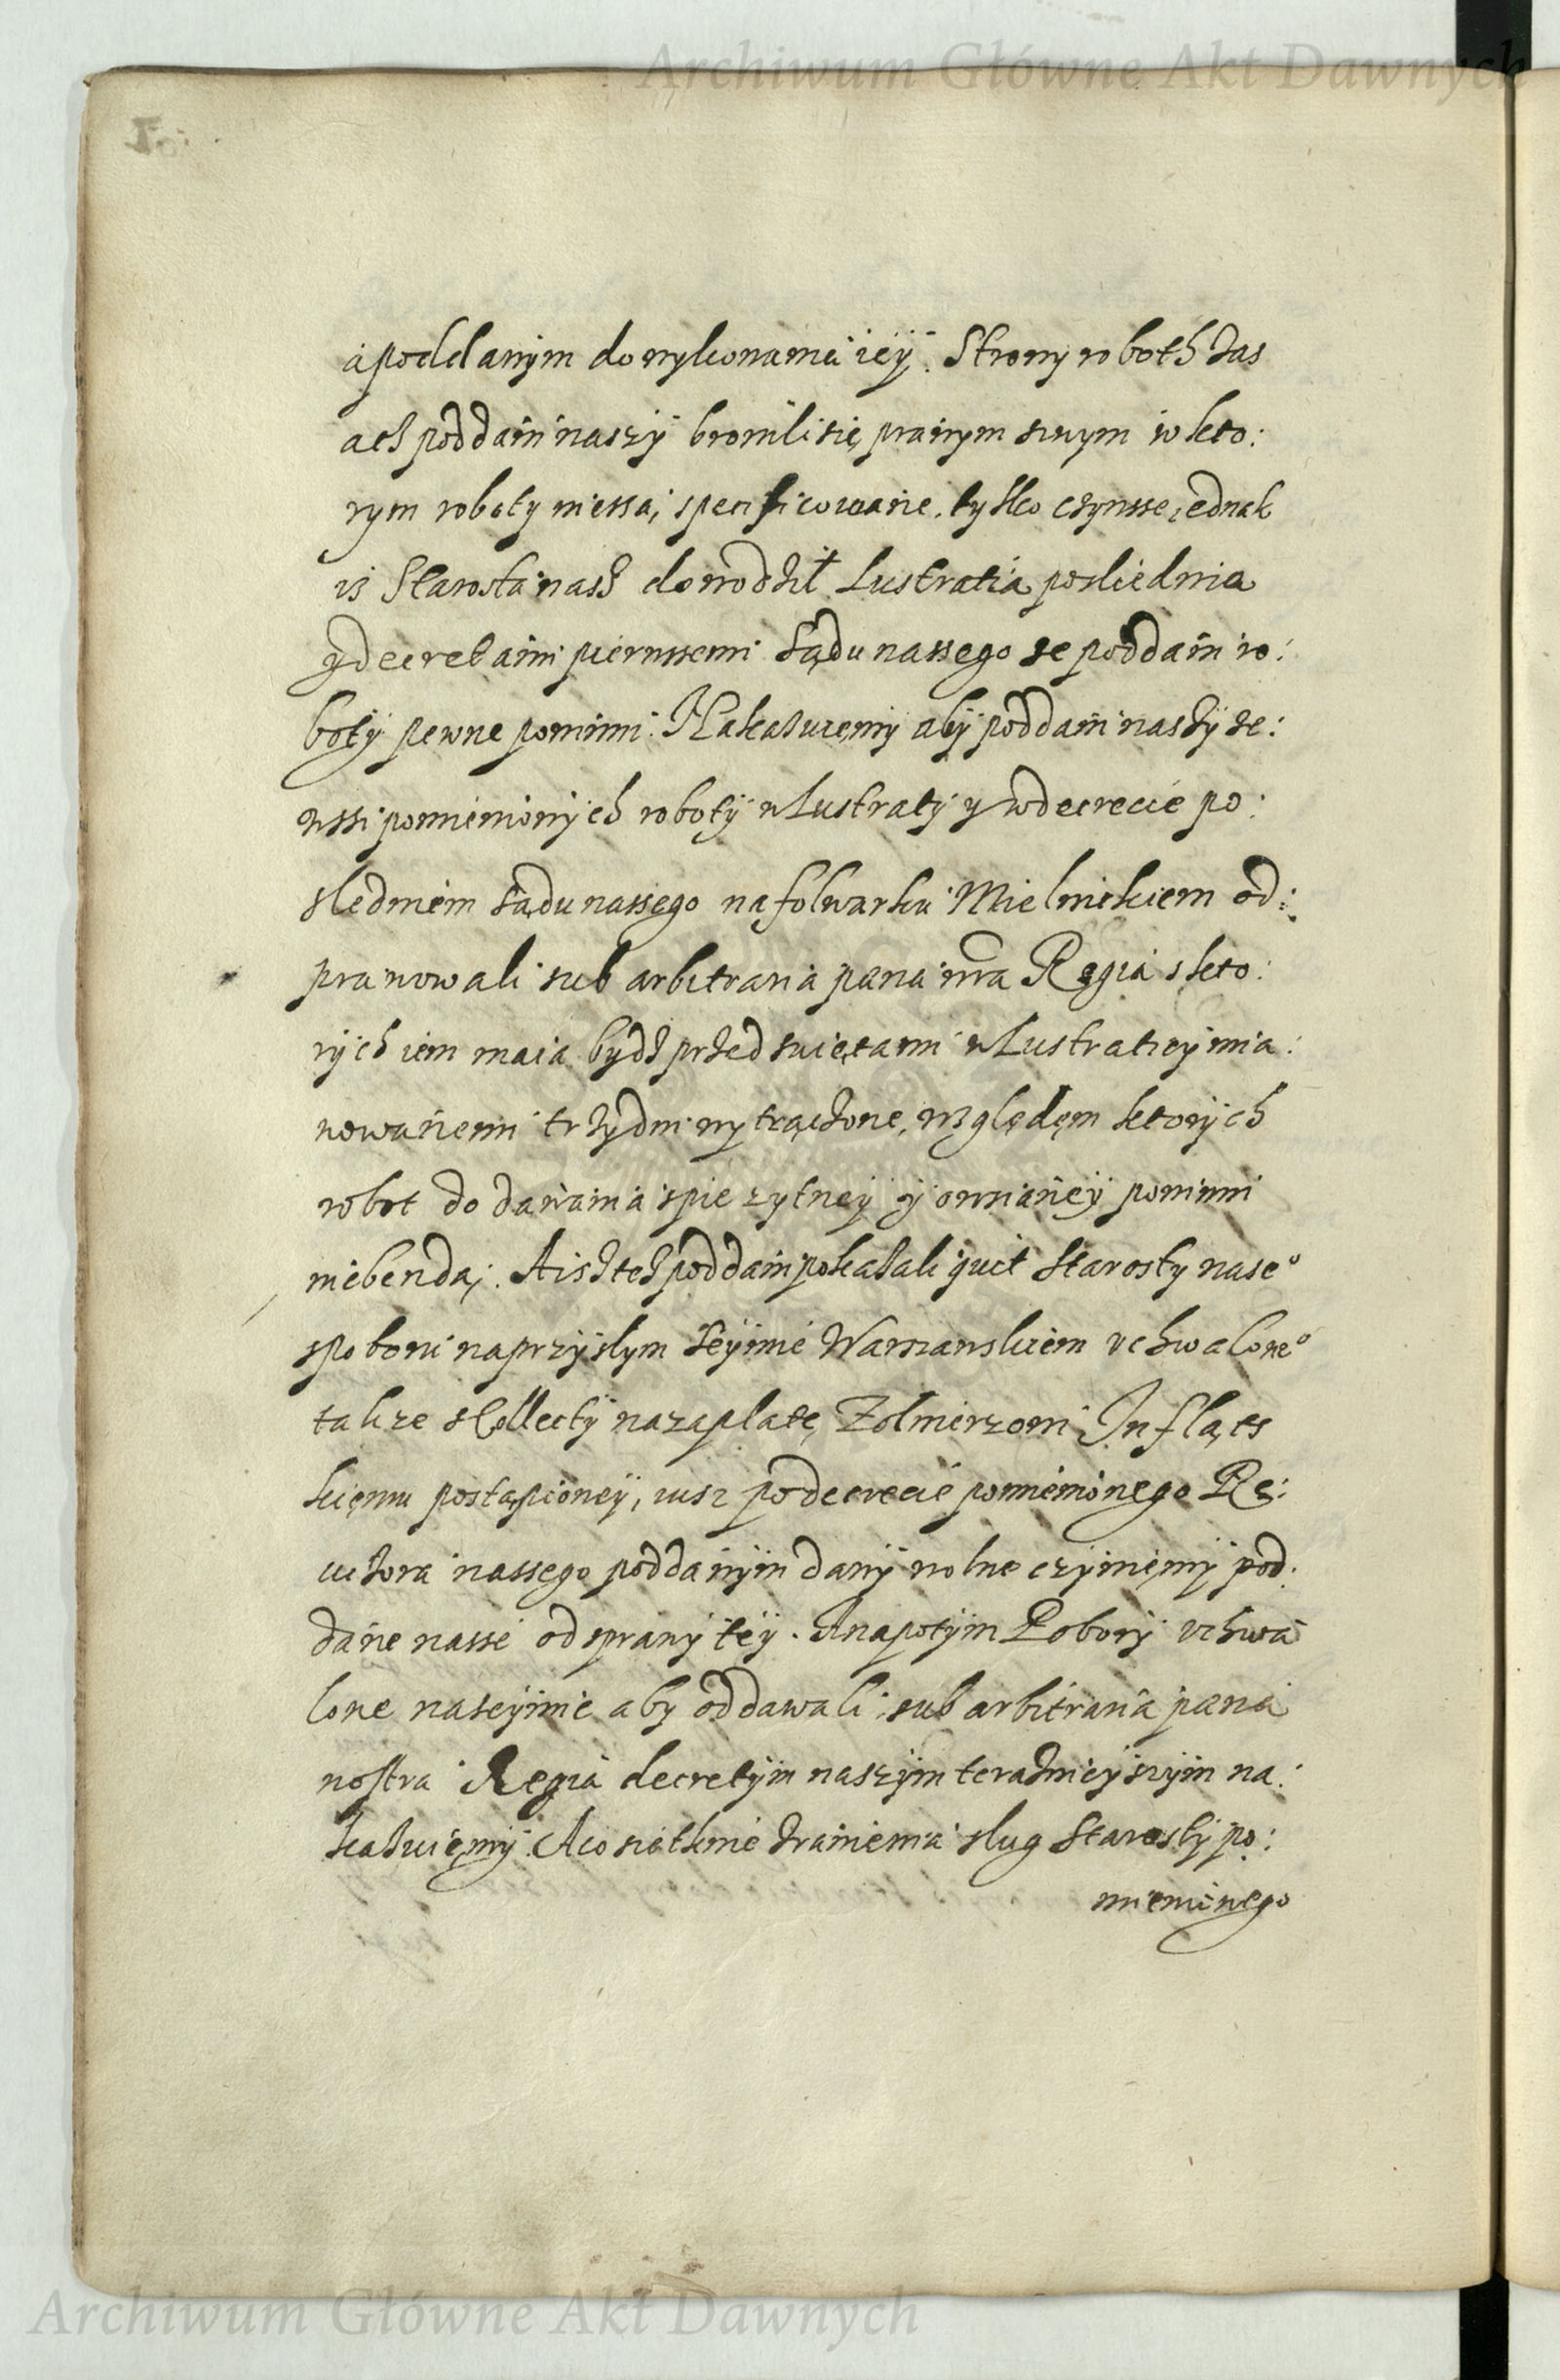 Archiwum Główne Akt Dawnych
a poddanym do wykonania iey. Strony roboth zas
acz poddani naszy bronili się prawym swym w kto:
rym roboty niessą specificowane, tylko czynsse, iednak
iz Starosta nasz dowodził Lustratią posliednią
y decretami pierwssemi Sądu nassego że poddani ro:
boty pewne powinni. Nakazuiemy aby poddani naszy ze:
wssi pomienionych roboty w Lustraty y w decrecie po:
sledniem Sądu nassego na folwarku Mielnickiem od:
prawowali sub arbitraria pæna nra Regia s kto:
rych iem maia bydz przed swiętami w Lustratiey mia:
nowanemi trzy dni wytrączone, względęm ktorych
robot do dawania spiże żytney y owsianey powinni
niebendą. A isz tesz poddani pokazali quit Starosty nasze°
s poboru na przyslym Seymie Warszawskiem vchwalone°
takze s Collecty na zapłatę Zolnierzowi Infląts
kięmu postąpioney, iusz po decrecie pomienionego Re:
wizora nassego poddanym dany wolne czyniemy pod:
dane nasse od sprawy tey. A napotym Pobory vchwa
lone na seymie aby oddawali sub arbitraria pæna
nostra Regia decretym naszym teraznieyszym na:
kazuięmy. A co sie tknie zranienia slug Starosty po:
mienionego
Archiwum Główne Akt Dawnych